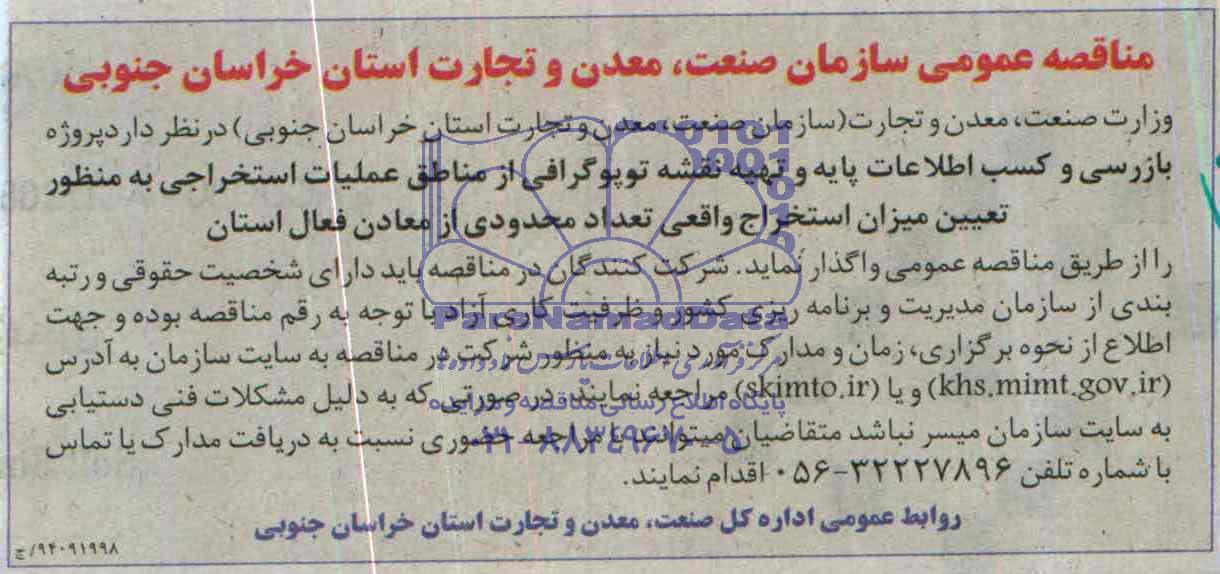 مناقصه عمومی سازمان صنعت، معدن و تجارت استان خراسان جنوبی
وزارت صنعت، معدن و تجارت (سازمان صنعت، معدن و تجارت استان خراسان جنوبی) در نظر دارد پروژه
بازرسی و کسب اطلاعات پایه و تهیه نقشه توپوگرافی از مناطق عملیات استخراجی به منظور
تعیین میزان استخراج واقعی تعداد محدودی از معادن فعال استان
را از طریق مناقصه عمومی واگذار نماید. شرکت کنندگان در مناقصه باید دارای شخصیت حقوقی و رتبه
بندی از سازمان مدیریت و برنامه ریزی کشور و ظرفیت کاری آزاد با توجه به رقم مناقصه بوده و جهت
اطلاع از نحوه برگزاری، زمان و مدارک مورد نیاز به منظور شرکت در مناقصه به سایت سازمان به آدرس
(khs.mimt.gov.ir) و یا (skimto.ir) مراجعه نمایند. در صورتی که به دلیل مشکلات فنی دستیابی
به سایت سازمان میسر نباشد متقاضیان میتوانند با مراجعه حضوری نسبت به دریافت مدارک یا تماس
با شماره تلفن ۳۲۲۲۷۸۹۶-۰۵۶ اقدام نمایند.
روابط عمومی اداره کل صنعت، معدن و تجارت استان خراسان جنوبی
۹۴۰۹۱۹۹۸/ج
ParsNamadData
پایگاه اطلاع رسانی مناقصه و مزایده